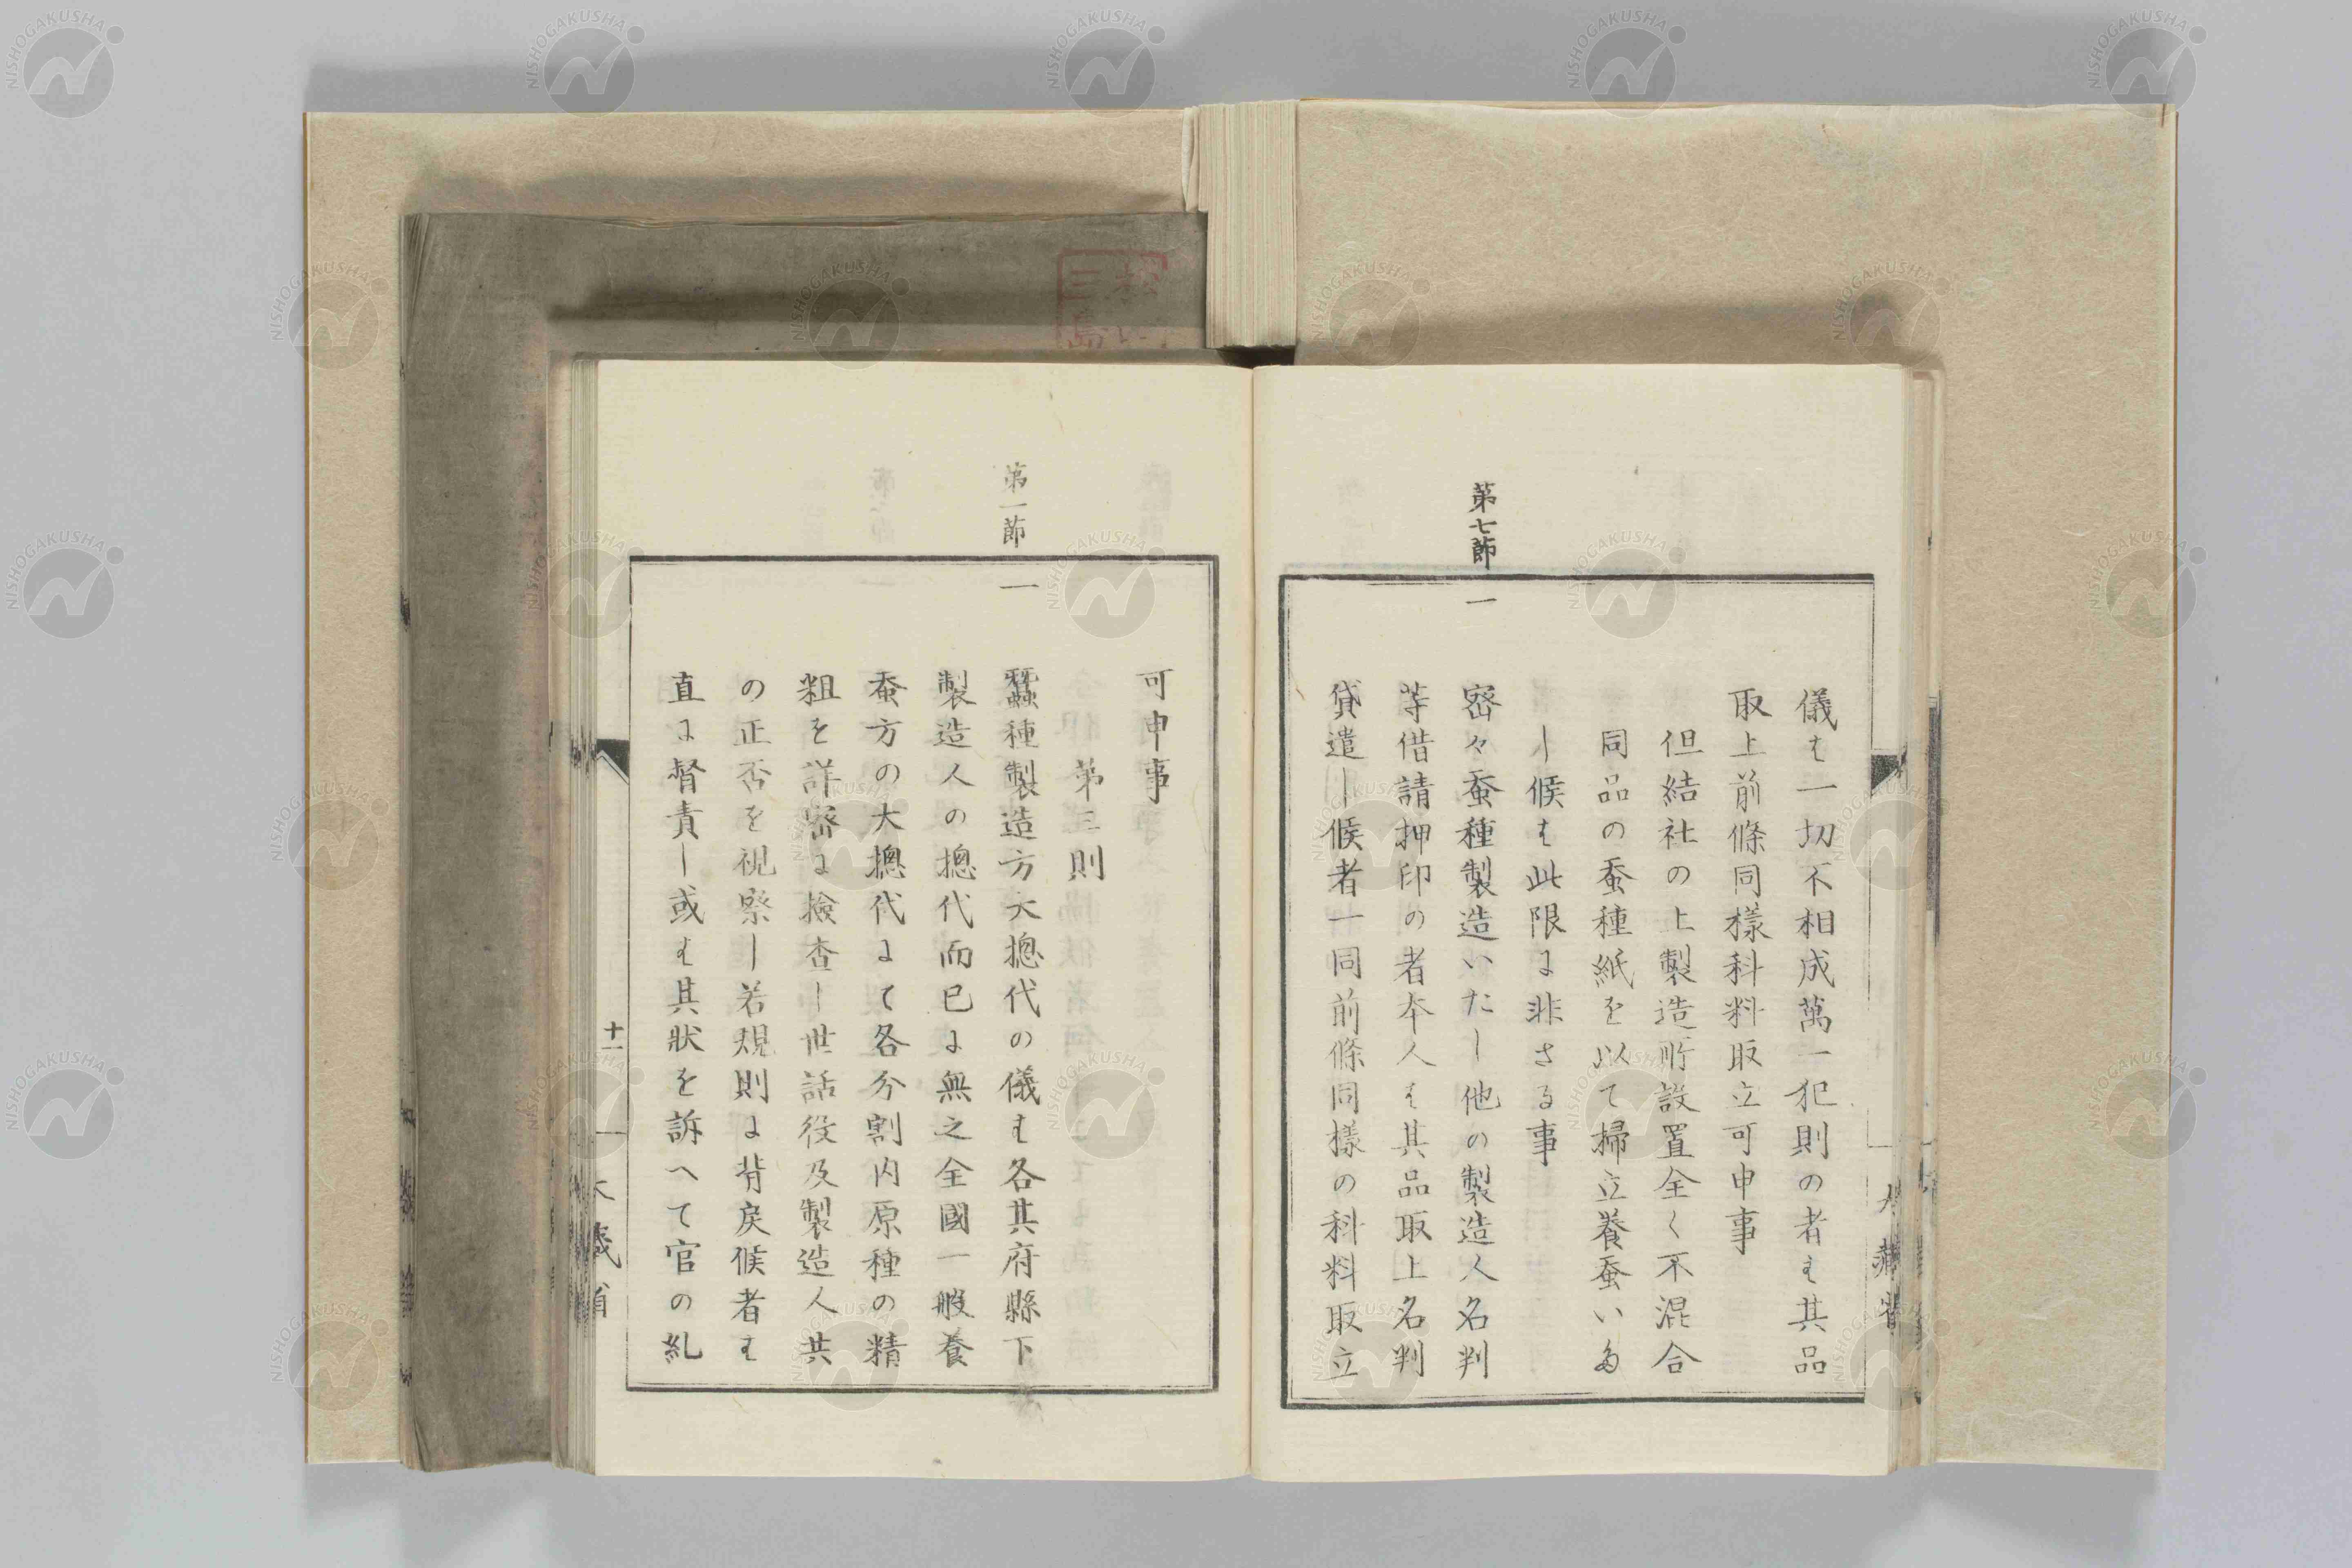 儀も一切不相成萬一犯則の者も其品
取上前條同樣科料取立可申事
但結社の上製造所設置全く不混合
同品の蚕種紙を以て掃立養蚕いた
し候も此限に非さる事
第七節
一
密々蚕種製造いたし他の製造人名判
等借請押印の者本人も其品取上名判
貸遣し候者一同前條同樣の科料取立
大藏省
可申事
第三則
第一節
一
蠶種製造方大摠代の儀も各其府縣下
製造人の摠代而已に無之全國一般養
蚕方の大摠代にて各分割内原種の精
粗を詳密に檢査し世話役及製造人共
の正否を視察し若規則に背戻候者も
直に督責し或も其狀を訴へて官の糺
十一
大藏省
NISHOGAKUSHA